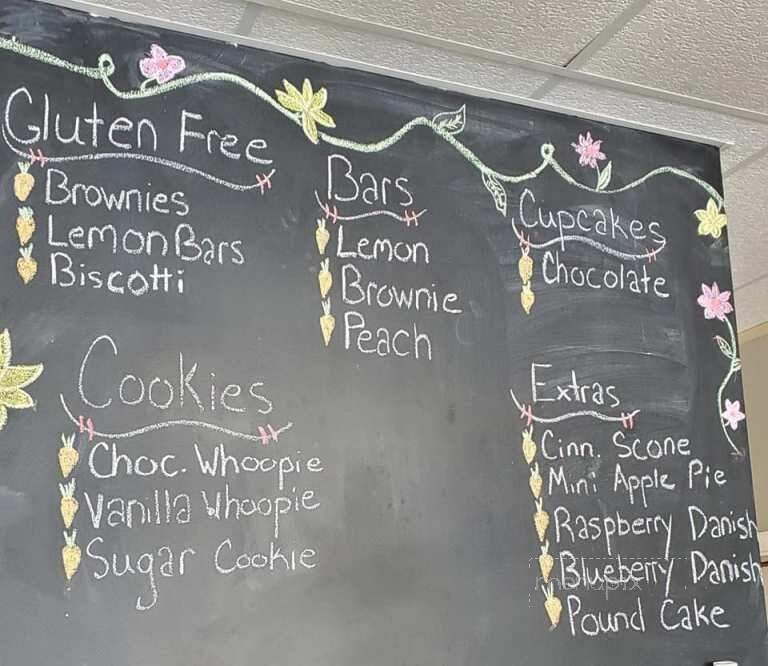 Gluten Free
Brownies
Lemon Bars
Biscotti
Bars
Lemon
Brownie
Peach
Cupcakes
Chocolate
Cookies
Choc. Whoopie
Vanilla Whoopie
Sugar Cookie
Extras
Cinn. Scone
Mini Apple Pie
Raspberry Danish
Blueberry Danish
Pound Cake
menupix